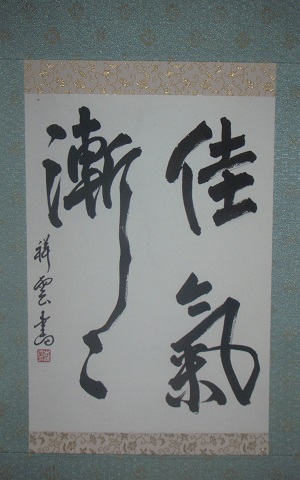 佳氣
漸々
祥雲書